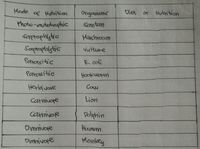 Mode of Nutrition Organisms Diet or Nutrition
Photo-autotrophic
Saprophytic Mushroom
Saprophytic Vulture
Parasitic E. coli
Parasitic Hookworm
Herbivore Cow
Carnivore Lion
Carnivore Dolphin
Omnivore Human
Omnivore Monkey